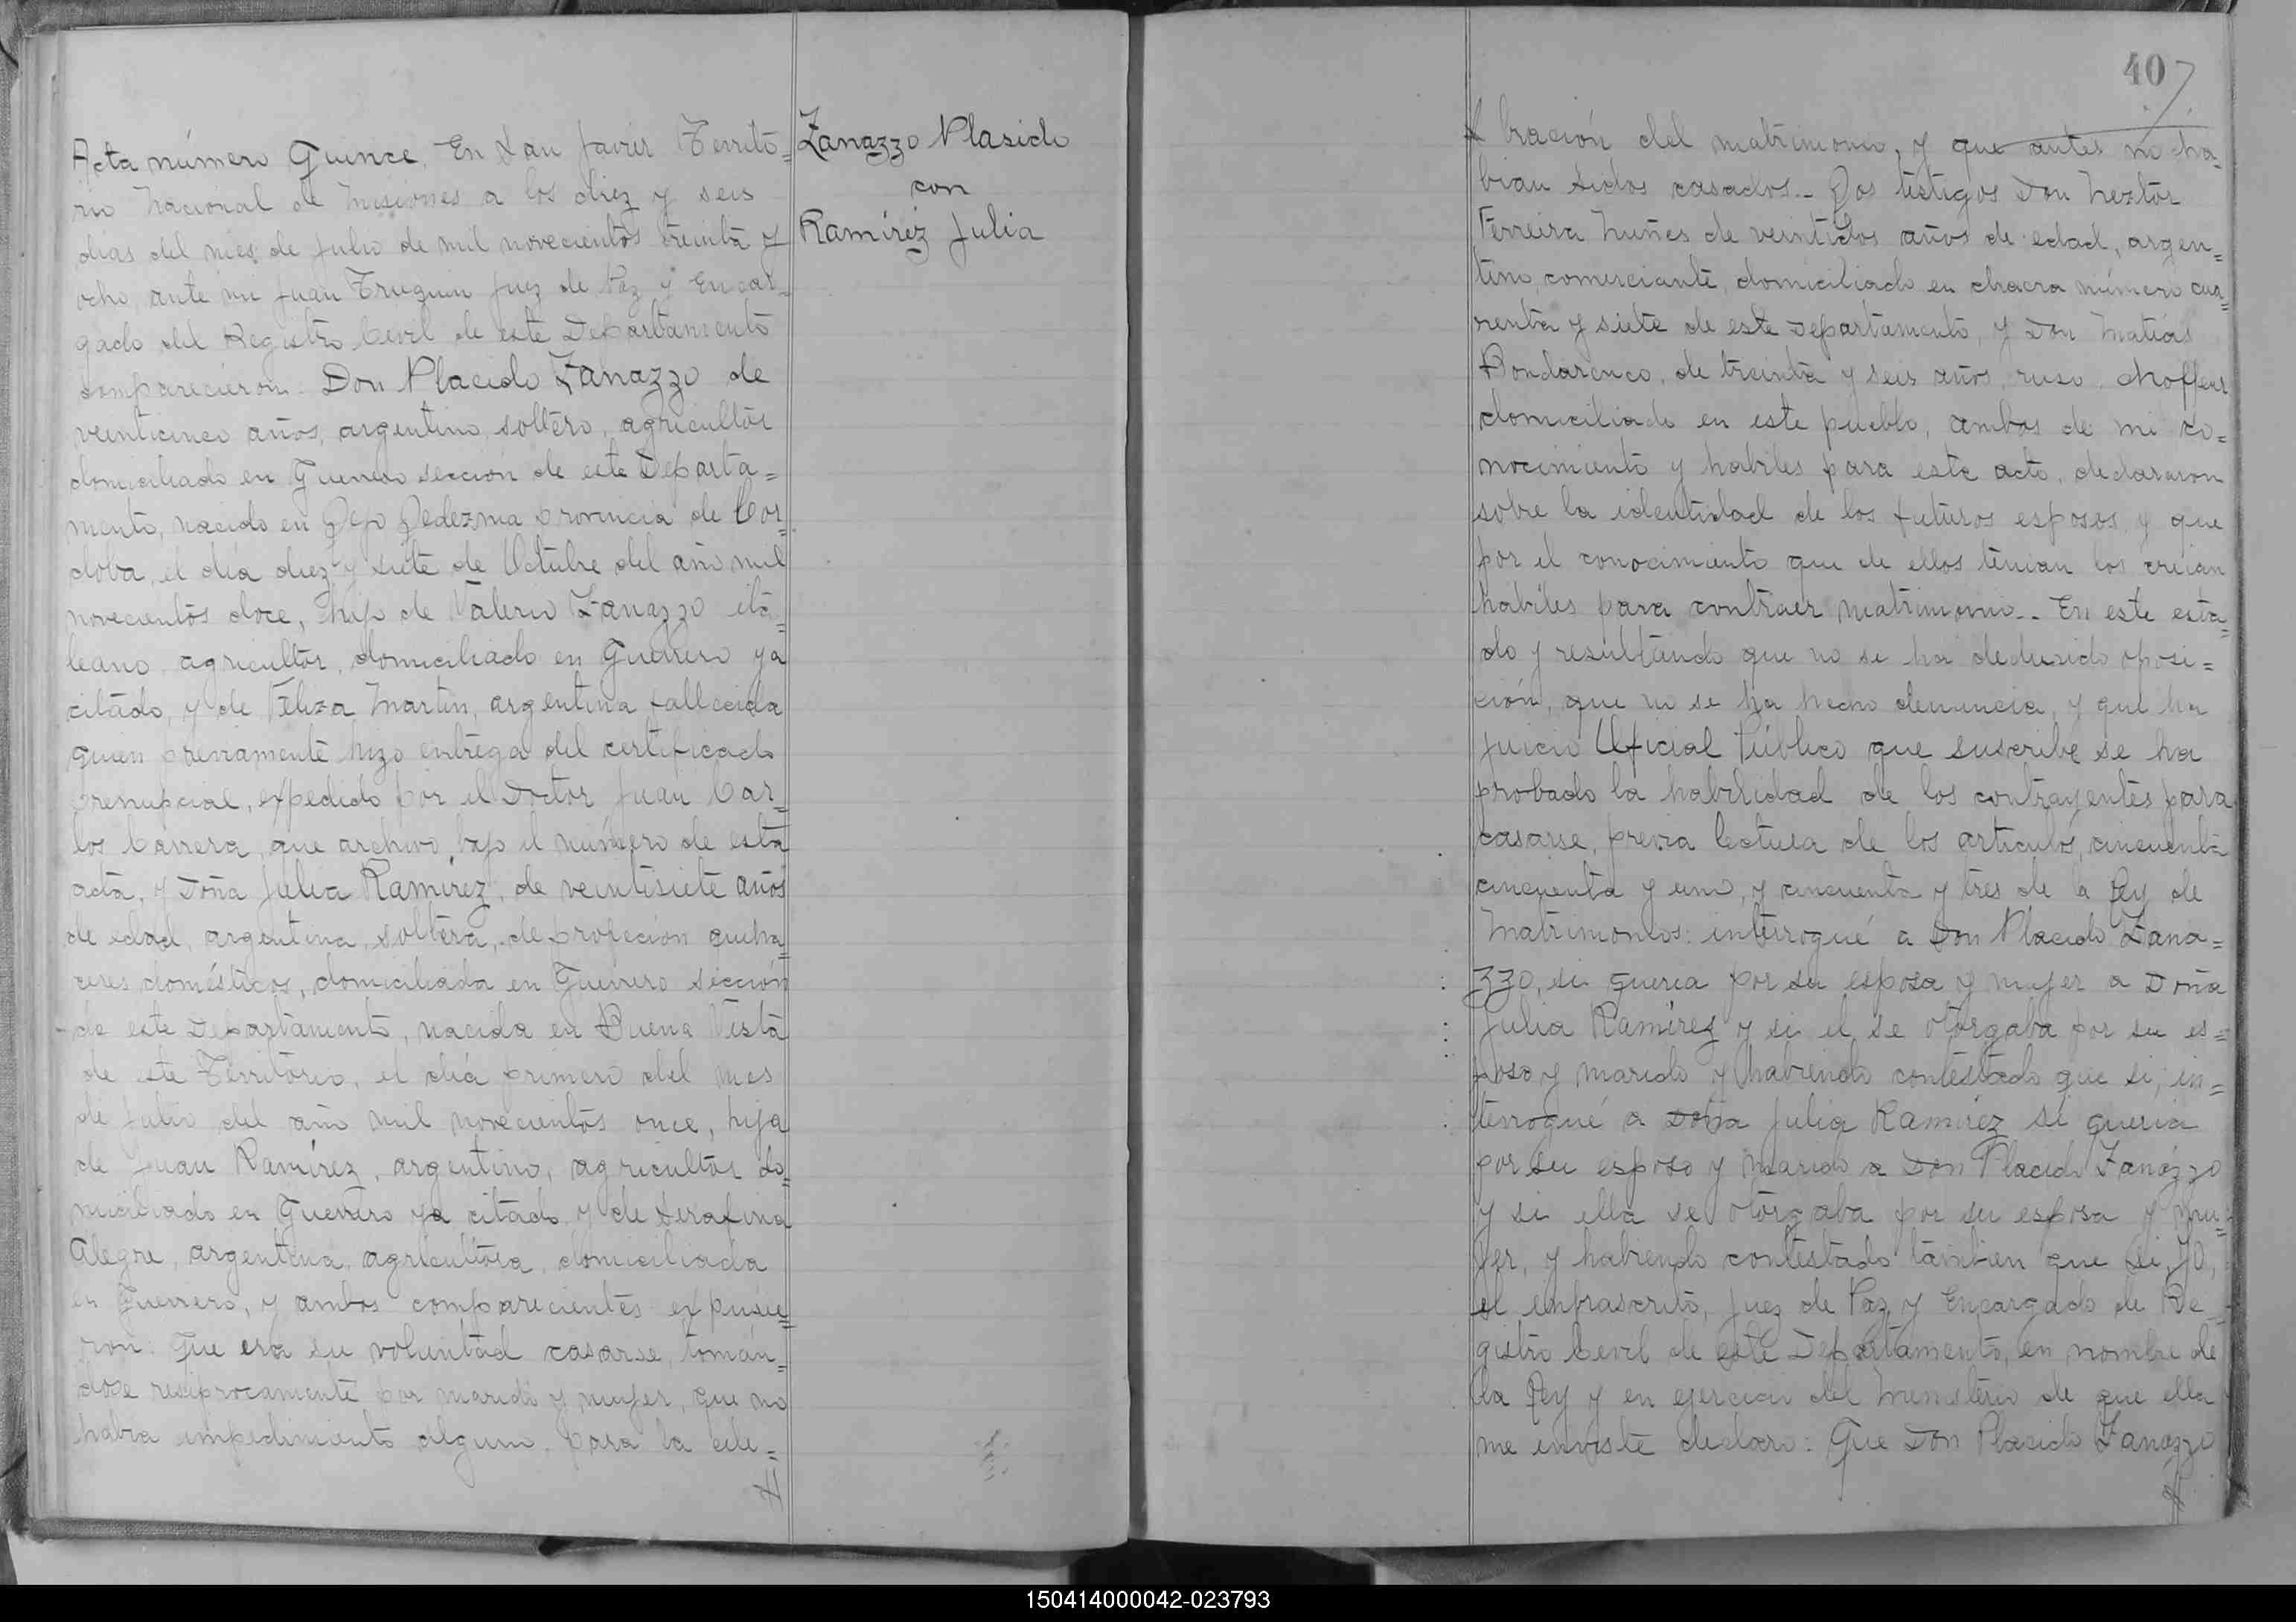 Acta número Quince. En San Javier Territo=
rio Nacional de Misiones a los diez y seis
dias del mes de Julio de mil novecientos treinta y
ocho, ante mi Juan Truquin Juez de Paz y Encar=
gado del Registro Civil de este Departamento
comparecieron. Don Placido Zanazzo de
veinticinco años, argentino, soltero, agricultor
domiciliado en Guerrero sección de este Departa=
mento, nacido en Dpto Ledezma provincia de Cor=
doba, el día diez y siete de Octubre del año mil
novecientos doce, hijo de Valerio Zanazzo ita=
leano, agricultor, domiciliado en Guerrero ya
citado, y de Feliza Martin, argentina fallecida
quien previamente hizo entrega del certificado
prenupcial, expedido por el Doctor Juan Car=
los Carrera, que archivo bajo el número de esta
acta, y Doña Julia Ramírez, de veintisiete años
de edad, argentina, soltera, de profeción queha=
ceres domésticos, domiciliada en Guerrero sección
de este Departamento, nacida en Buena Vista
de este Territorio, el día primero del mes
de Julio del año mil novecientos once, hija
de Juan Ramírez, argentino, agricultor do=
miciliado en Guerrero ya citado y de Serafina
Alegre, argentina, agricultora, domiciliada
en Guerrero, y ambos comparecientes expusie=
ron: Que era su voluntad casarse, tomán=
dose resiprocamente por marido y mujer, que no
habia impedimiento alguno para la cele=
#
Zanazzo Plasido
con
Ramírez Julia
40
# bración del matrimonio, y que antes no ha=
bian sidos casados.- Los testigos Don Nextor
Ferreira Nuñes de veintidos años de edad, argen=
tino, comerciante, domiciliado en chacra número cua=
renta y siete de este Departamento, y Don Matías
Bondarenco, de treinta y seis años, ruso, choffeur
domiciliado en este pueblo, ambos de mi co=
nocimiento y habiles para este acto, declararon
sobre la identidad de los futuros esposos y que
por el conocimiento que de ellos tenian los creian
habiles para contraer matrimonio.- En este esta=
do y resultando que no se ha deducido oposi=
ción, que no se ha hecho denuncia, y que ha
juicio Oficial Público que suscribe se ha
probado la habilidad de los contrayentes para
casarse, previa lectura de los articulos, cincuenta
cincuenta y uno, y cincuenta y tres de la Ley de
Matrimonios: interrogué a Don Placido Zana=
zzo, si queria por su esposa y mujer a Doña
Julia Ramírez y si el se otorgaba por su es=
poso y marido y habiendo contestado que si, in=
terrogué a Doña Julia Ramírez si queria
por su esposo y marido a Don Placido Zanazzo
y si ella se otorgaba por su esposa y mu=
jer, y habiendo contestado tambien que si, yo,
el infrascrito, Juez de Paz y Encargado de Re=
gistro Civil de este Departamento, en nombre de
la Ley y en ejercicio del Ministerio de que ella
me inviste declaro: Que Don Placido Zanazzo
#
150414000042-023793